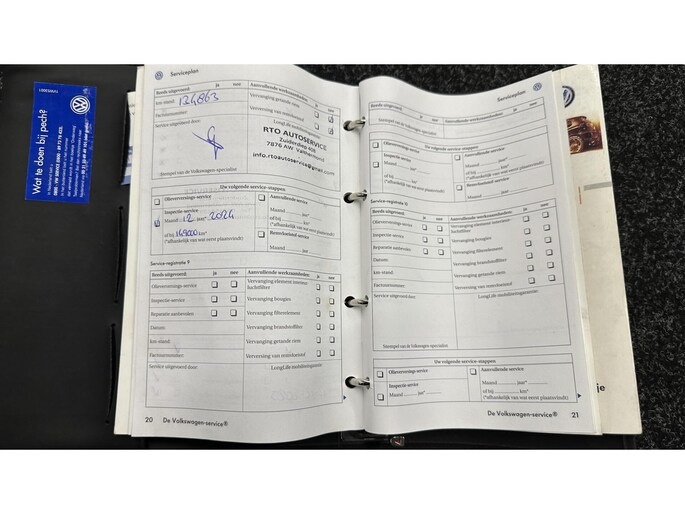 Wat te doen bij pech?
Serviceplan
Reeds uitgevoerd: ja nee
km-stand: 134863
Factuurnummer:
Service uitgevoerd door:
Stempel van de Volkswagen specialist
Aanvullende werkzaamheden: ja nee
Vervanging getande riem
Verversing van motorbeleid
RTO AUTOSERVICE
Zuiderdiep 408
7876 AW Valthermond
info.rtoautoservice@gmail.com
Uw volgende service-stappen:
Olieverversings-service
Inspectie-service
Maand 12 jaar 2024
of bij 149000 km*
(*afhankelijk van wat eerst plaatsvindt)
Aanvullende service
Maand jaar*
of bij km
(*afhankelijk van wat eerst plaatsvindt)
Remvloeistof service
Maand jaar
Service-registratie 9
Reeds uitgevoerd: ja nee
Olieverversings-service
Inspectie-service
Reparatie aanbevolen
Datum:
km-stand:
Factuurnummer:
Service uitgevoerd door:
Aanvullende werkzaamheden: ja nee
Vervanging bougies
Vervanging filterelement
Vervanging brandstoffilter
Vervanging getande riem
LongLife mobiliteitsgarantie:
20 De Volkswagen-service®
Serviceplan
Reeds uitgevoerd: ja nee
Uw volgende service-stappen:
Olieverversings-service
Inspectie-service
Aanvullende service
Remvloeistof service
Service-registratie 10
Reeds uitgevoerd: ja nee
Olieverversings-service
Inspectie-service
Reparatie aanbevolen
Datum:
km-stand:
Factuurnummer:
Service uitgevoerd door:
Stempel van de Volkswagen specialist
Aanvullende werkzaamheden: ja nee
Vervanging bougies
Vervanging filterelement
Vervanging brandstoffilter
Vervanging getande riem
LongLife mobiliteitsgarantie:
Uw volgende service-stappen
Olieverversings-service
Inspectie-service
Maand jaar*
of bij km*
(*afhankelijk van wat eerst plaatsvindt)
Aanvullende service
Maand jaar*
of bij km*
(*afhankelijk van wat eerst plaatsvindt)
De Volkswagen-service® 21
je